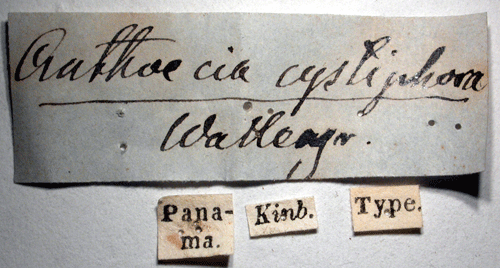 Anthoecia cystiphora
Wallengr.
Pana-
ma.
Kinb.
Type.